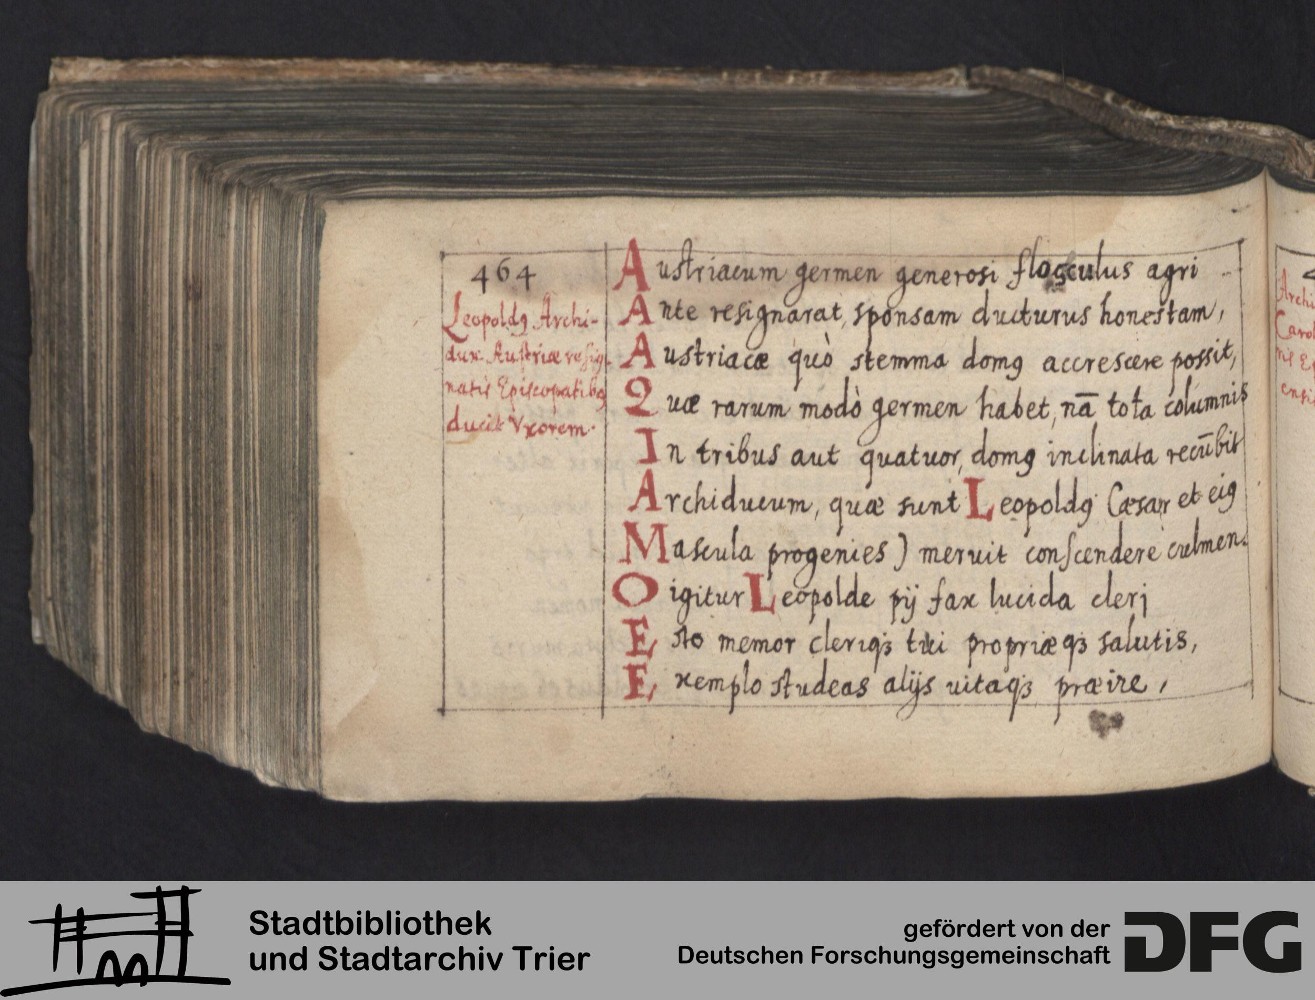 464
Leopoldꝰ Archi-
dux Austriæ resig-
natis Episcopatibꝰ
ducit Uxorem.
Austriacum germen generosi flosculus agri
Ante resignarat, sponsam ducturus honestam,
Austriacæ quò stemma domꝰ accrescere possit,
Quæ rarum modò germen habet, nā tota columnis
In tribus aut quatuor, domꝰ inclinata recūbit
Archiducum, quæ sunt Leopoldꝰ Cæsar et eiꝰ
Mascula progenies) meruit conscendere culmen.
O igitur Leopolde pij fax lucida clerj
Esto memor cleriqꝫ tui propriæqꝫ salutis,
Exemplo studeas alijs uitaqꝫ præire,
Archi
Carol
Stadtbibliothek
und Stadtarchiv Trier
gefördert von der
Deutschen Forschungsgemeinschaft
DFG